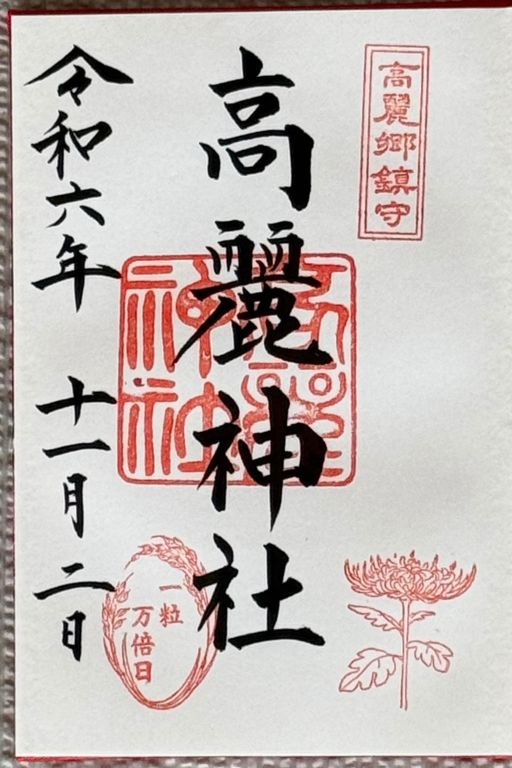 高麗郷鎮守
高麗神社
高麗神社
一粒
万倍日
令和六年 十一月二日